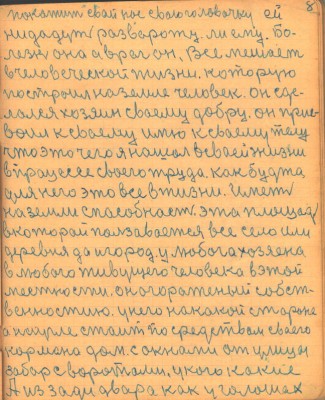 8
покотит свай нос свою головочку ей
нидадут развороту. ли ему. бо-
лезнь она а враг он. Все мешает
в человеческой жизни. которую
построил на земле человек. он сде-
лался хозяин своему добру. он прис-
воил к своему имю к своему телу
что это чего я нашол в своей жизни
в працессе своего труда. как будта
для него это все в жизни. Имет
на земли способнает. эта площад
в которой ползавается все село или
деревня да и город. у любога хозяена
в любого живущего человека в этой
местности. он огороженый собст-
венностию. у него на какой стороне
а научле стаит по средствам своего
кармана дом. с окнами от улицы
забар с воротами, у кого какие
А из зади двара как у голоших